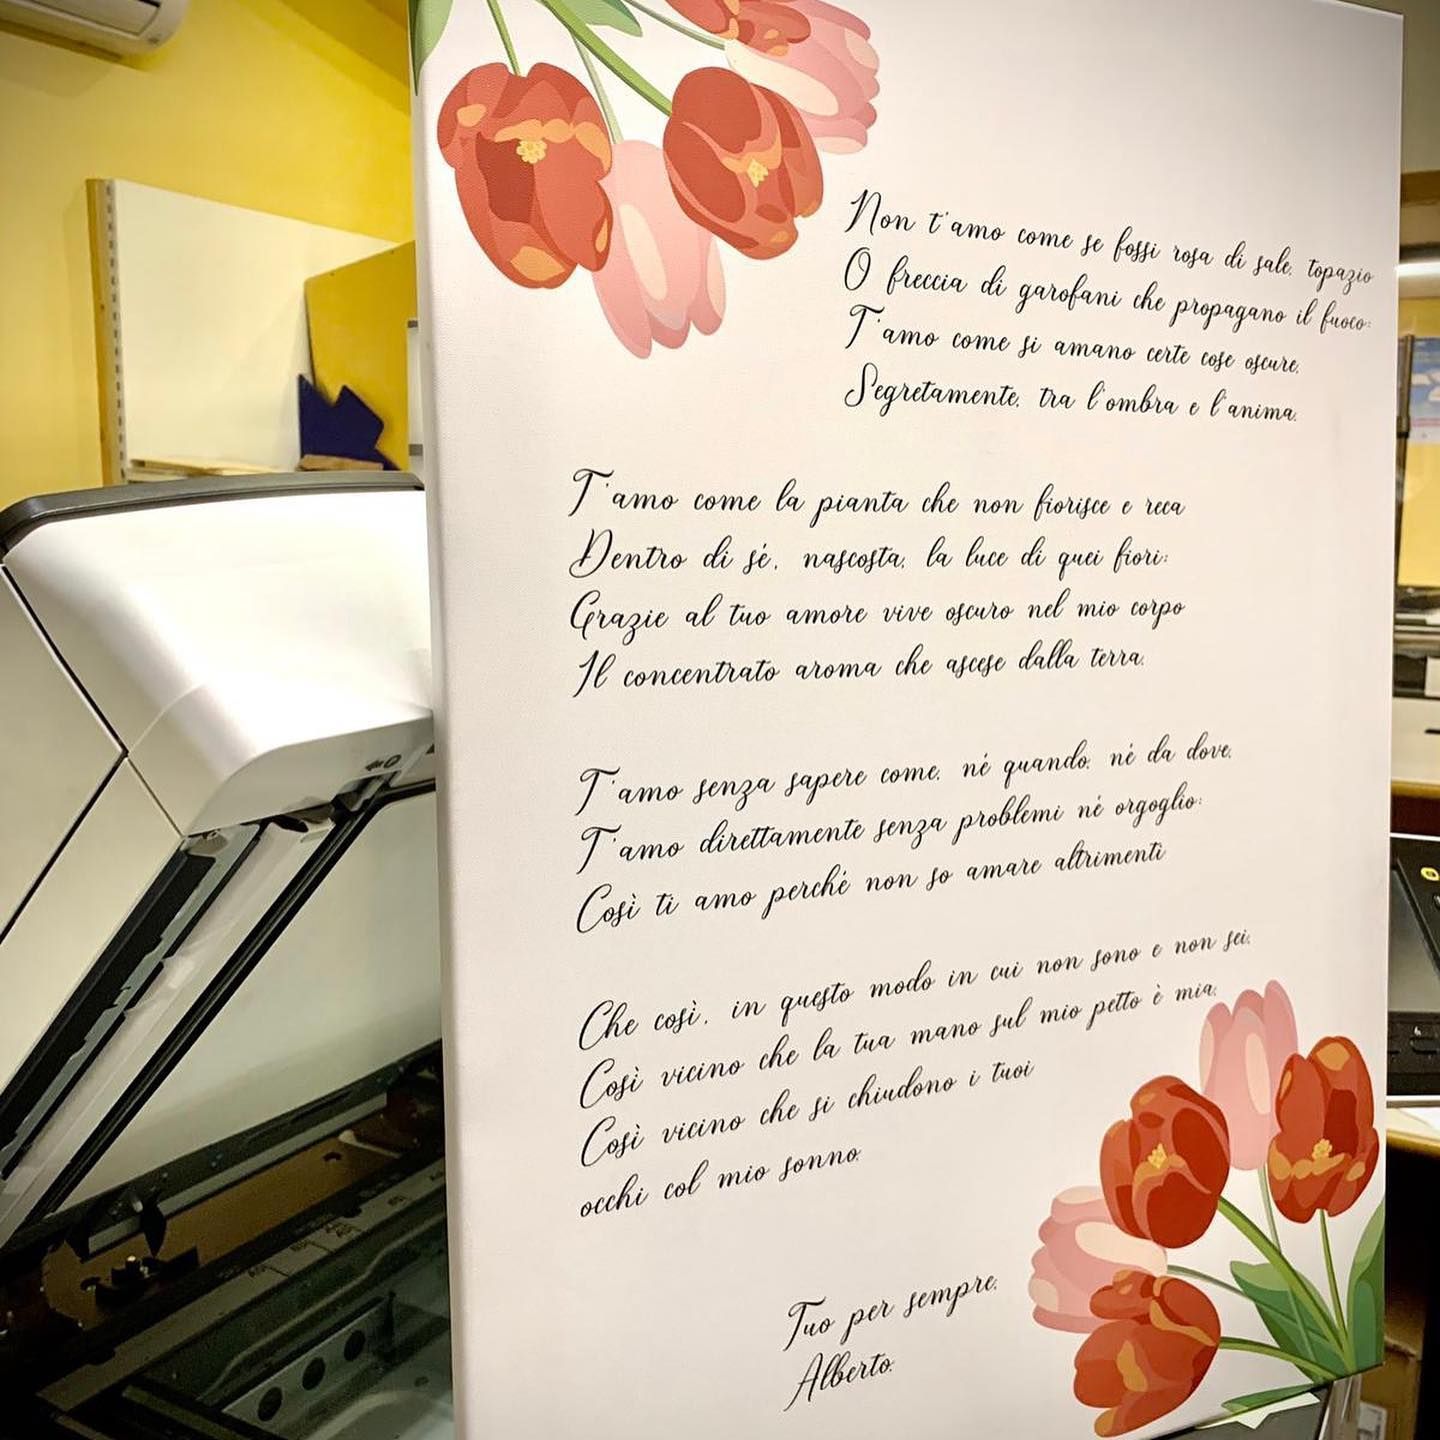 Non t'amo come se fossi rosa di sale, topazio
O freccia di garofani che propagano il fuoco:
T'amo come si amano certe cose oscure,
Segretamente, tra l'ombra e l'anima.
T'amo come la pianta che non fiorisce e reca
Dentro di sé, nascosta, la luce di quei fiori;
Grazie al tuo amore vive oscuro nel mio corpo
Il concentrato aroma che ascese dalla terra.
T'amo senza sapere come, né quando, né da dove,
T'amo direttamente senza problemi né orgoglio:
Così ti amo perché non so amare altrimenti
Che così, in questo modo in cui non sono e non sei,
Così vicino che la tua mano sul mio petto è mia,
Così vicino che si chiudono i tuoi
occhi col mio sonno.
Tuo per sempre,
Alberto.